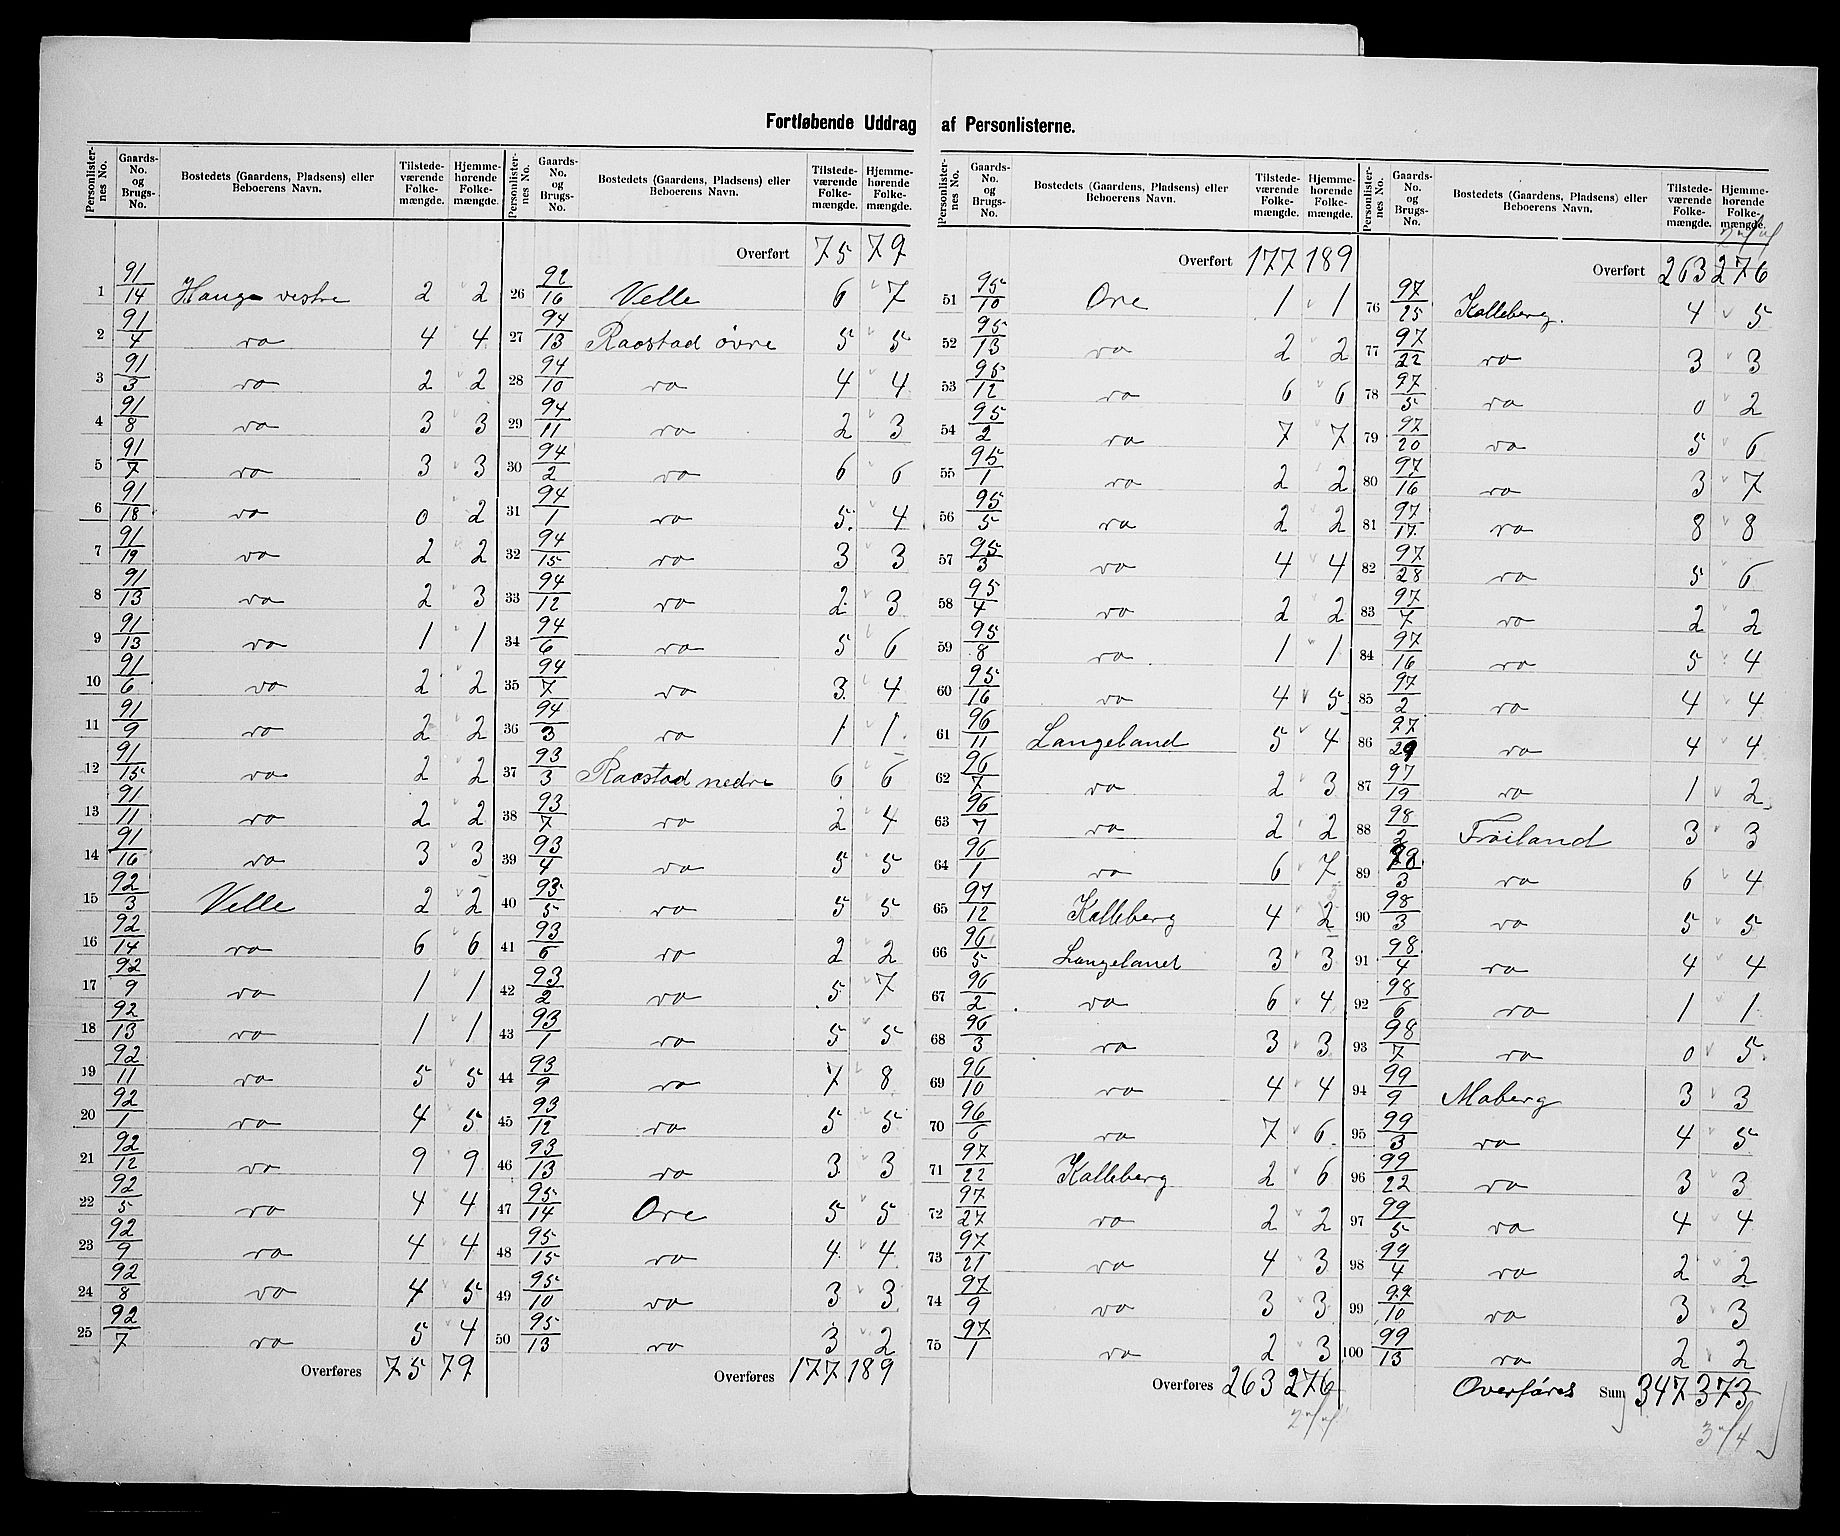 Fortløbende Uddrag af Personlisterne.
Personlister-nes No. | Gaards-No. og Brugs-No. | Bostedets (Gaardens, Pladsens) eller Beboerens Navn. | Tilstede-værende Folke-mængde. | Hjemme-hørende Folke-mængde.
1 91/14 Hauge vestre 2 2
2 91/4 ro 4 4
3 91/3 ro 2 2
4 91/8 ro 3 3
5 91/7 ro 3 3
6 91/18 ro 0 2
7 91/19 ro 2 2
8 91/13 ro 2 3
9 91/13 ro 1 1
10 91/6 ro 2 2
11 91/9 ro 2 2
12 91/15 ro 2 2
13 91/11 ro 2 2
14 91/16 ro 3 3
15 92/3 Velle 2 2
16 92/14 ro 6 6
17 92/9 ro 1 1
18 92/13 ro 1 1
19 92/11 ro 5 5
20 92/1 ro 4 5
21 92/12 ro 9 9
22 92/5 ro 4 4
23 92/9 ro 4 4
24 92/8 ro 4 5
25 92/7 ro 5 4
Overføres 75 79
Personlister-nes No. | Gaards-No. og Brugs-No. | Bostedets (Gaardens, Pladsens) eller Beboerens Navn. | Tilstede-værende Folke-mængde. | Hjemme-hørende Folke-mængde.
Overført 75 79
26 92/16 Velle 6 7
27 94/13 Raostad øvre 5 5
28 94/10 ro 4 4
29 94/11 ro 2 3
30 94/2 ro 6 6
31 94/1 ro 5 4
32 94/15 ro 3 3
33 94/12 ro 2 3
34 94/6 ro 5 6
35 94/7 ro 3 4
36 94/3 ro 1 1
37 93/3 Raostad nedre 6 6
38 93/7 ro 2 4
39 93/4 ro 5 5
40 93/5 ro 5 5
41 93/6 ro 2 2
42 93/2 ro 5 7
43 93/1 ro 5 5
44 93/9 ro 7 8
45 93/12 ro 5 5
46 93/13 ro 3 3
47 95/14 Ore 5 5
48 95/15 ro 4 4
49 95/10 ro 3 3
50 95/13 ro 3 2
Overføres 177 189
Personlister-nes No. | Gaards-No. og Brugs-No. | Bostedets (Gaardens, Pladsens) eller Beboerens Navn. | Tilstede-værende Folke-mængde. | Hjemme-hørende Folke-mængde.
Overført 177 189
51 95/10 Ore 1 1
52 95/13 ro 2 2
53 95/12 ro 6 6
54 95/2 ro 7 7
55 95/1 ro 2 2
56 95/5 ro 2 2
57 95/3 ro 4 4
58 95/4 ro 2 2
59 95/8 ro 1 1
60 95/16 ro 4 5
61 96/11 Langeland 5 4
62 96/7 ro 2 3
63 96/7 ro 2 2
64 96/1 ro 6 7
65 97/12 Kalleberg 4 2
66 96/5 Langeland 3 3
67 96/2 ro 6 4
68 96/3 ro 3 3
69 96/10 ro 4 4
70 96/6 ro 7 6
71 97/22 Kalleberg 2 6
72 97/27 ro 2 2
73 97/21 ro 4 3
74 97/9 ro 3 3
75 97/1 ro 2 3
Overføres 263 276
Personlister-nes No. | Gaards-No. og Brugs-No. | Bostedets (Gaardens, Pladsens) eller Beboerens Navn. | Tilstede-værende Folke-mængde. | Hjemme-hørende Folke-mængde.
Overført 263 276
76 97/25 Kalleberg. 4 5
77 97/22 ro 3 3
78 97/5 ro 0 2
79 97/20 ro 5 6
80 97/16 ro 3 7
81 97/17 ro 8 8
82 97/28 ro 5 6
83 97/7 ro 2 2
84 97/16 ro 5 4
85 97/2 ro 4 4
86 97/29 ro 4 4
87 97/19 ro 1 2
88 98/2 Fröiland 3 3
89 98/3 ro 6 4
90 98/3 ro 5 5
91 98/4 ro 4 4
92 98/6 ro 1 1
93 98/7 ro 0 5
94 99/9 Moberg 3 3
95 99/3 ro 4 5
96 99/22 ro 3 3
97 99/5 ro 4 4
98 99/4 ro 2 2
99 99/10 ro 3 3
100 99/13 ro 2 2
Overføres Sum 347 373